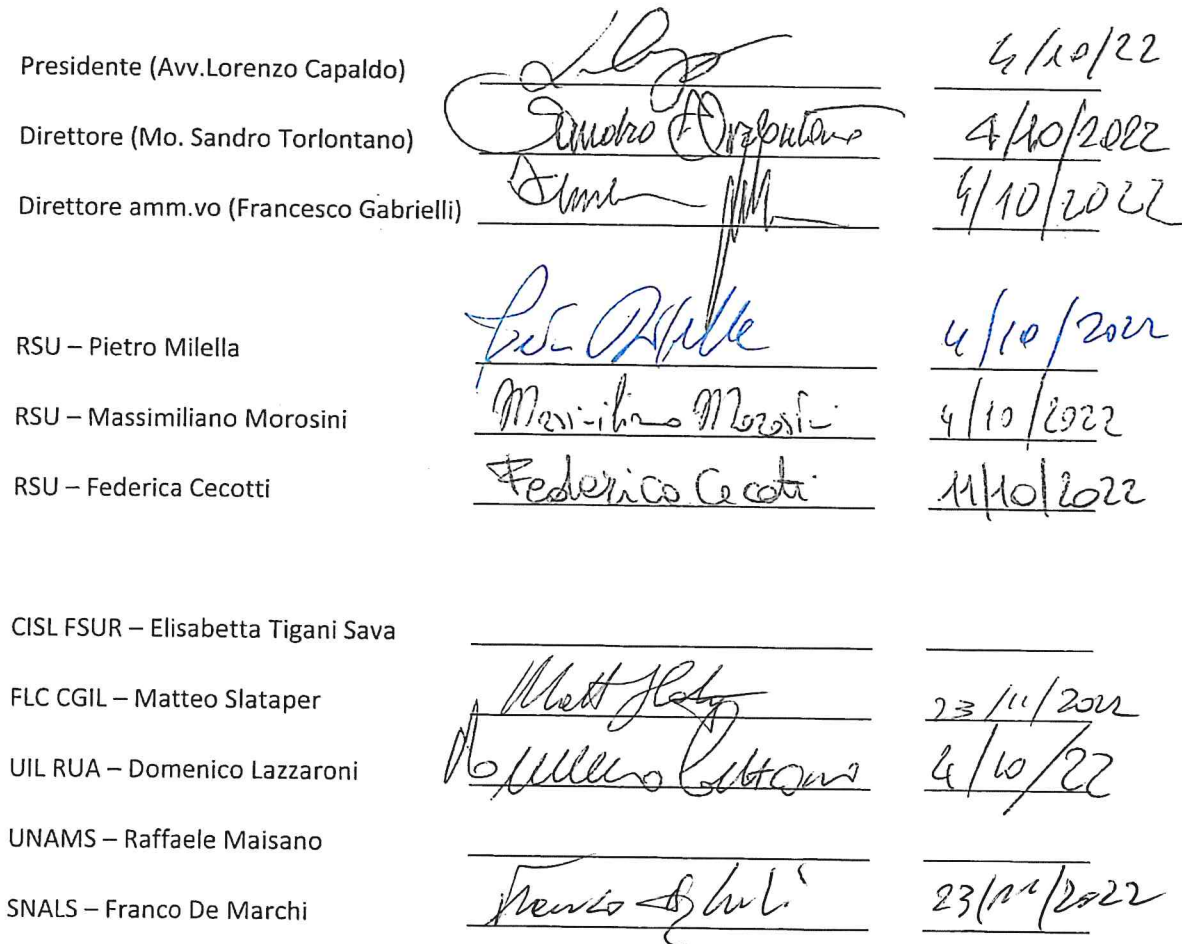 Presidente (Avv.Lorenzo Capaldo) 4/10/22
Direttore (Mo. Sandro Torlontano) Sandro Torlontano 4/10/2022
Direttore amm.vo (Francesco Gabrielli) 4/10/2022
RSU – Pietro Milella 4/10/2022
RSU – Massimiliano Morosini Massimiliano Morosini 4/10/2022
RSU – Federica Cecotti Federica Cecotti 11/10/2022
CISL FSUR – Elisabetta Tigani Sava
FLC CGIL – Matteo Slataper 23/11/2022
UIL RUA – Domenico Lazzaroni 4/10/22
UNAMS – Raffaele Maisano
SNALS – Franco De Marchi 23/11/2022